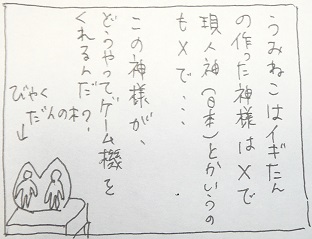 うみねこはイギたん
の作った神様はXで
現人神(日本)とかいうの
もXで・・・
この神様が、
どうやってゲーム機を
くれるんだ?
びゃく
だんの木?
↓